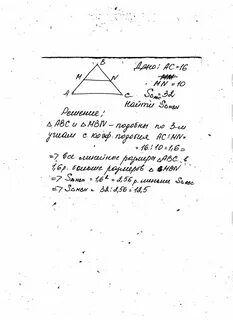 B
M N
A C
Дано: AC=16
MN=10
S=32
Найти Sмвн
Решение:
△ABC и △MBN - подобны по 3-м
углам с коэф. подобия AC:MN=
=16:10=1,6=
=> все линейные размеры △ABC в
1,6 р. больше размеров △MBN
=> Sмвн = 1,6² = 2,56 р. меньше Sавс
=> Sмвн = 32:2,56 = 12,5